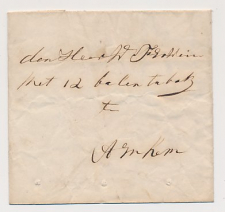 den Heer W
Met 12 balen tabak
te
Arnhem